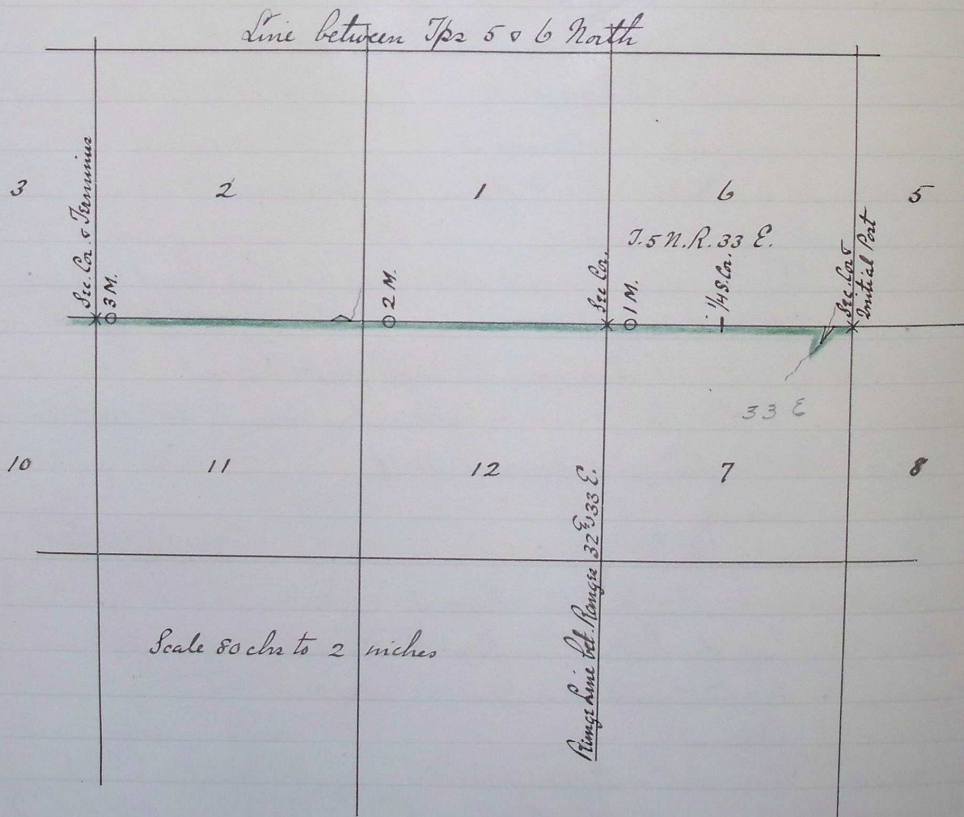 Line between Tps 5 & 6 North
3
2
1
6
5
T. 5 N. R. 33 E.
Sec. Cor. & Terminus
3 M.
2 M.
Sec Cor.
1 M.
1/4 S. Cor.
Sec. Cor &
Initial Post
33 E
10
11
12
7
8
Range Line bet. Ranges 32 E & 33 E.
Scale 80 chs to 2 inches